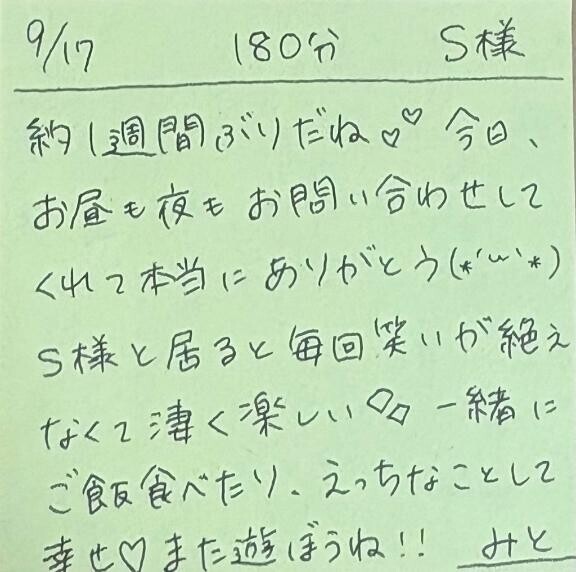 9/17 180分 S様
約1週間ぶりだね♡♡ 今日、
お昼も夜もお問い合わせして
くれて本当にありがとう(*´ω`*)
S様と居ると毎回笑いが絶え
なくて凄く楽しい◇◇ 一緒に
ご飯食べたり、えっちなことして
幸せ♡また遊ぼうね!! みと